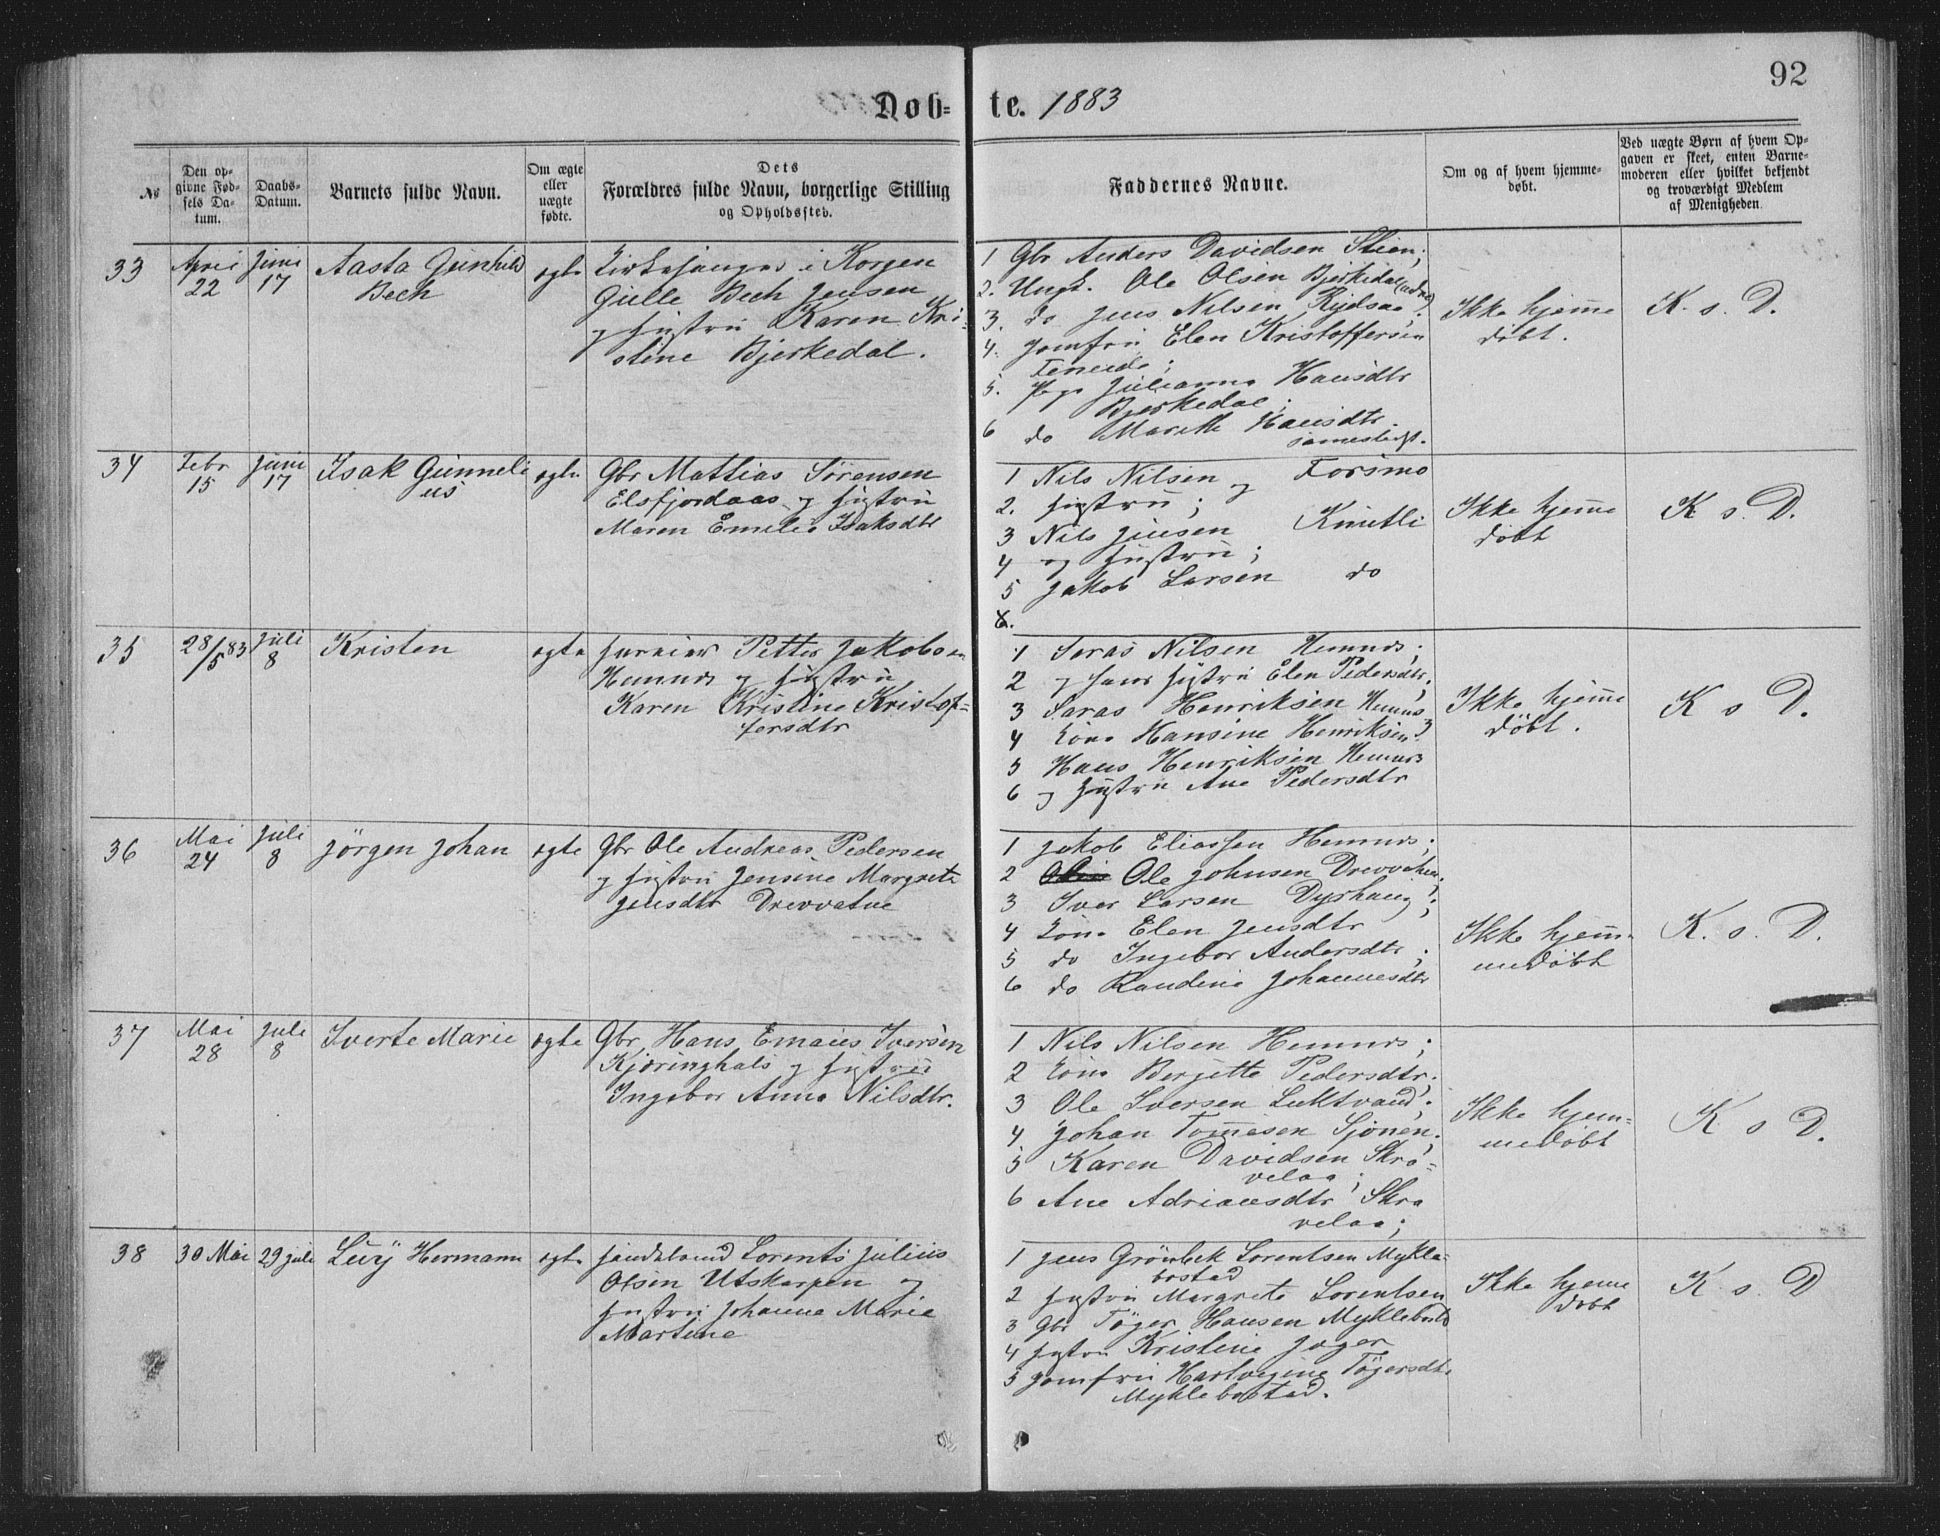 92
Døb= te. 1883
No
Den op=
givne Fød=
sels Da=
tum.
Daabs=
Datum.
Barnets fulde Navn.
Om ægte
eller
uægte
fødte.
Dets
Forældres fulde Navn, borgerlige Stilling
og Opholdssted.
Faddernes Navne.
Om og af hvem hjemme=
døbt.
Ved uægte Børn af hvem Op=
gaven er skeet, enten Barne=
moderen eller hvilket bekjendt
og troværdigt Medlem
af Menigheden.
33
April
22
Juni
17
Aasta Gunhild
Bech
ægte
Kirkesanger i Korgen
Gulle Bech Jensen
og Hustru Karen Kri-
stine Bjerkedal.
1 Gbr Anders Davidsen Steen;
2. Ungk. Ole Olsen Bjerkedal
3. do Jens Nilsen
4. Jomfru Elen Kristoffersen
5. Pge Julianna Hansdtr
Bjerkedal;
6 do Marith Hansdtr
sammesteds.
Ikke hjemme
døbt.
K. s. D.
34
Febr
15
Juni
17
Isak Gunneli
us
ægte
Gbr Mattias Sørensen
Elsfjordaas og Hustru
Maren Emilie Isaksdtr
1 Nils Nilsen og Forsmo
2. Hustru;
3 Nils Jensen Knutli
4 og Hustru;
5 Jakob Larsen do
6.
Ikke hjemme
døbt
K s. D.
35
28/5 83
Juli
8
Kristen
ægte
Inderier Petter Jakobsen
Hemnes og Hustru
Karen Kristine Kristof=
fersdtr
1 Saras Nilsen Hemnes;
2 og hans Hustru Elen Pedersdtr;
3 Saras Henriksen Hemnes
4 Kone Hansine Henriksen;
5 Hans Henriksen Hemnes
6 og Hustru Ane Pedersdtr
Ikke hjemme
døbt.
K s D.
36
Mai
24
Juli
8
Jørgen Johan
ægte
Gbr Ole Andreas Pedersen
og Hustru Jensine Margrete
Jensdtr Drevvatne
1 Jakob Eliassen Hemnes;
2 Ole Johnsen
3 Iver Larsen Dyrhaug;
4 Kone Elen Jensdtr
5 do Ingebor Andersdtr;
6 do Randine Johannesdtr
Ikke hjem=
medøbt
K. s. D.
37
Mai
28
Juli
8
Iverte Marie
ægte
Gbr Hans Emaus Iversen
Kjæringhals og Hustru
Ingebor Anna Nilsdtr.
1 Nils Nilsen Hemnes;
2 Kone Bergitte Pedersdtr;
3 Ole Iversen Luktvand;
4. Johan Tomesen Sjonen;
5 Karen Davidsen Skra=
velaa;
6 Ane Adriansdtr Skra
velaa;
Ikke hjem=
medøbt
K s D.
38
30 Mai
29 Juli
Levy Hermann
ægte
Lorents Julius
Olsen Utskarpen og
Hustru Johanna Marie
Martine
1 Jens Grønbek Lorentsen Mykle=
bostad
2 Hustru Margrete Lorentsen
3 Gbr Tøger Hansen Myklebostd
4 Hustru Kristine
5 Jomfru Hartvigine Tøgersdtr
Myklebostad.
Ikke hjemme
døbt
K s. D